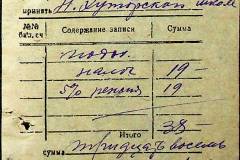 принять Н. Хуторской школ
№№ бал. сч Содержание записи Сумма
налог 19 —
5% пенсия 19
Итого 38 —
сумма тридцать восемь